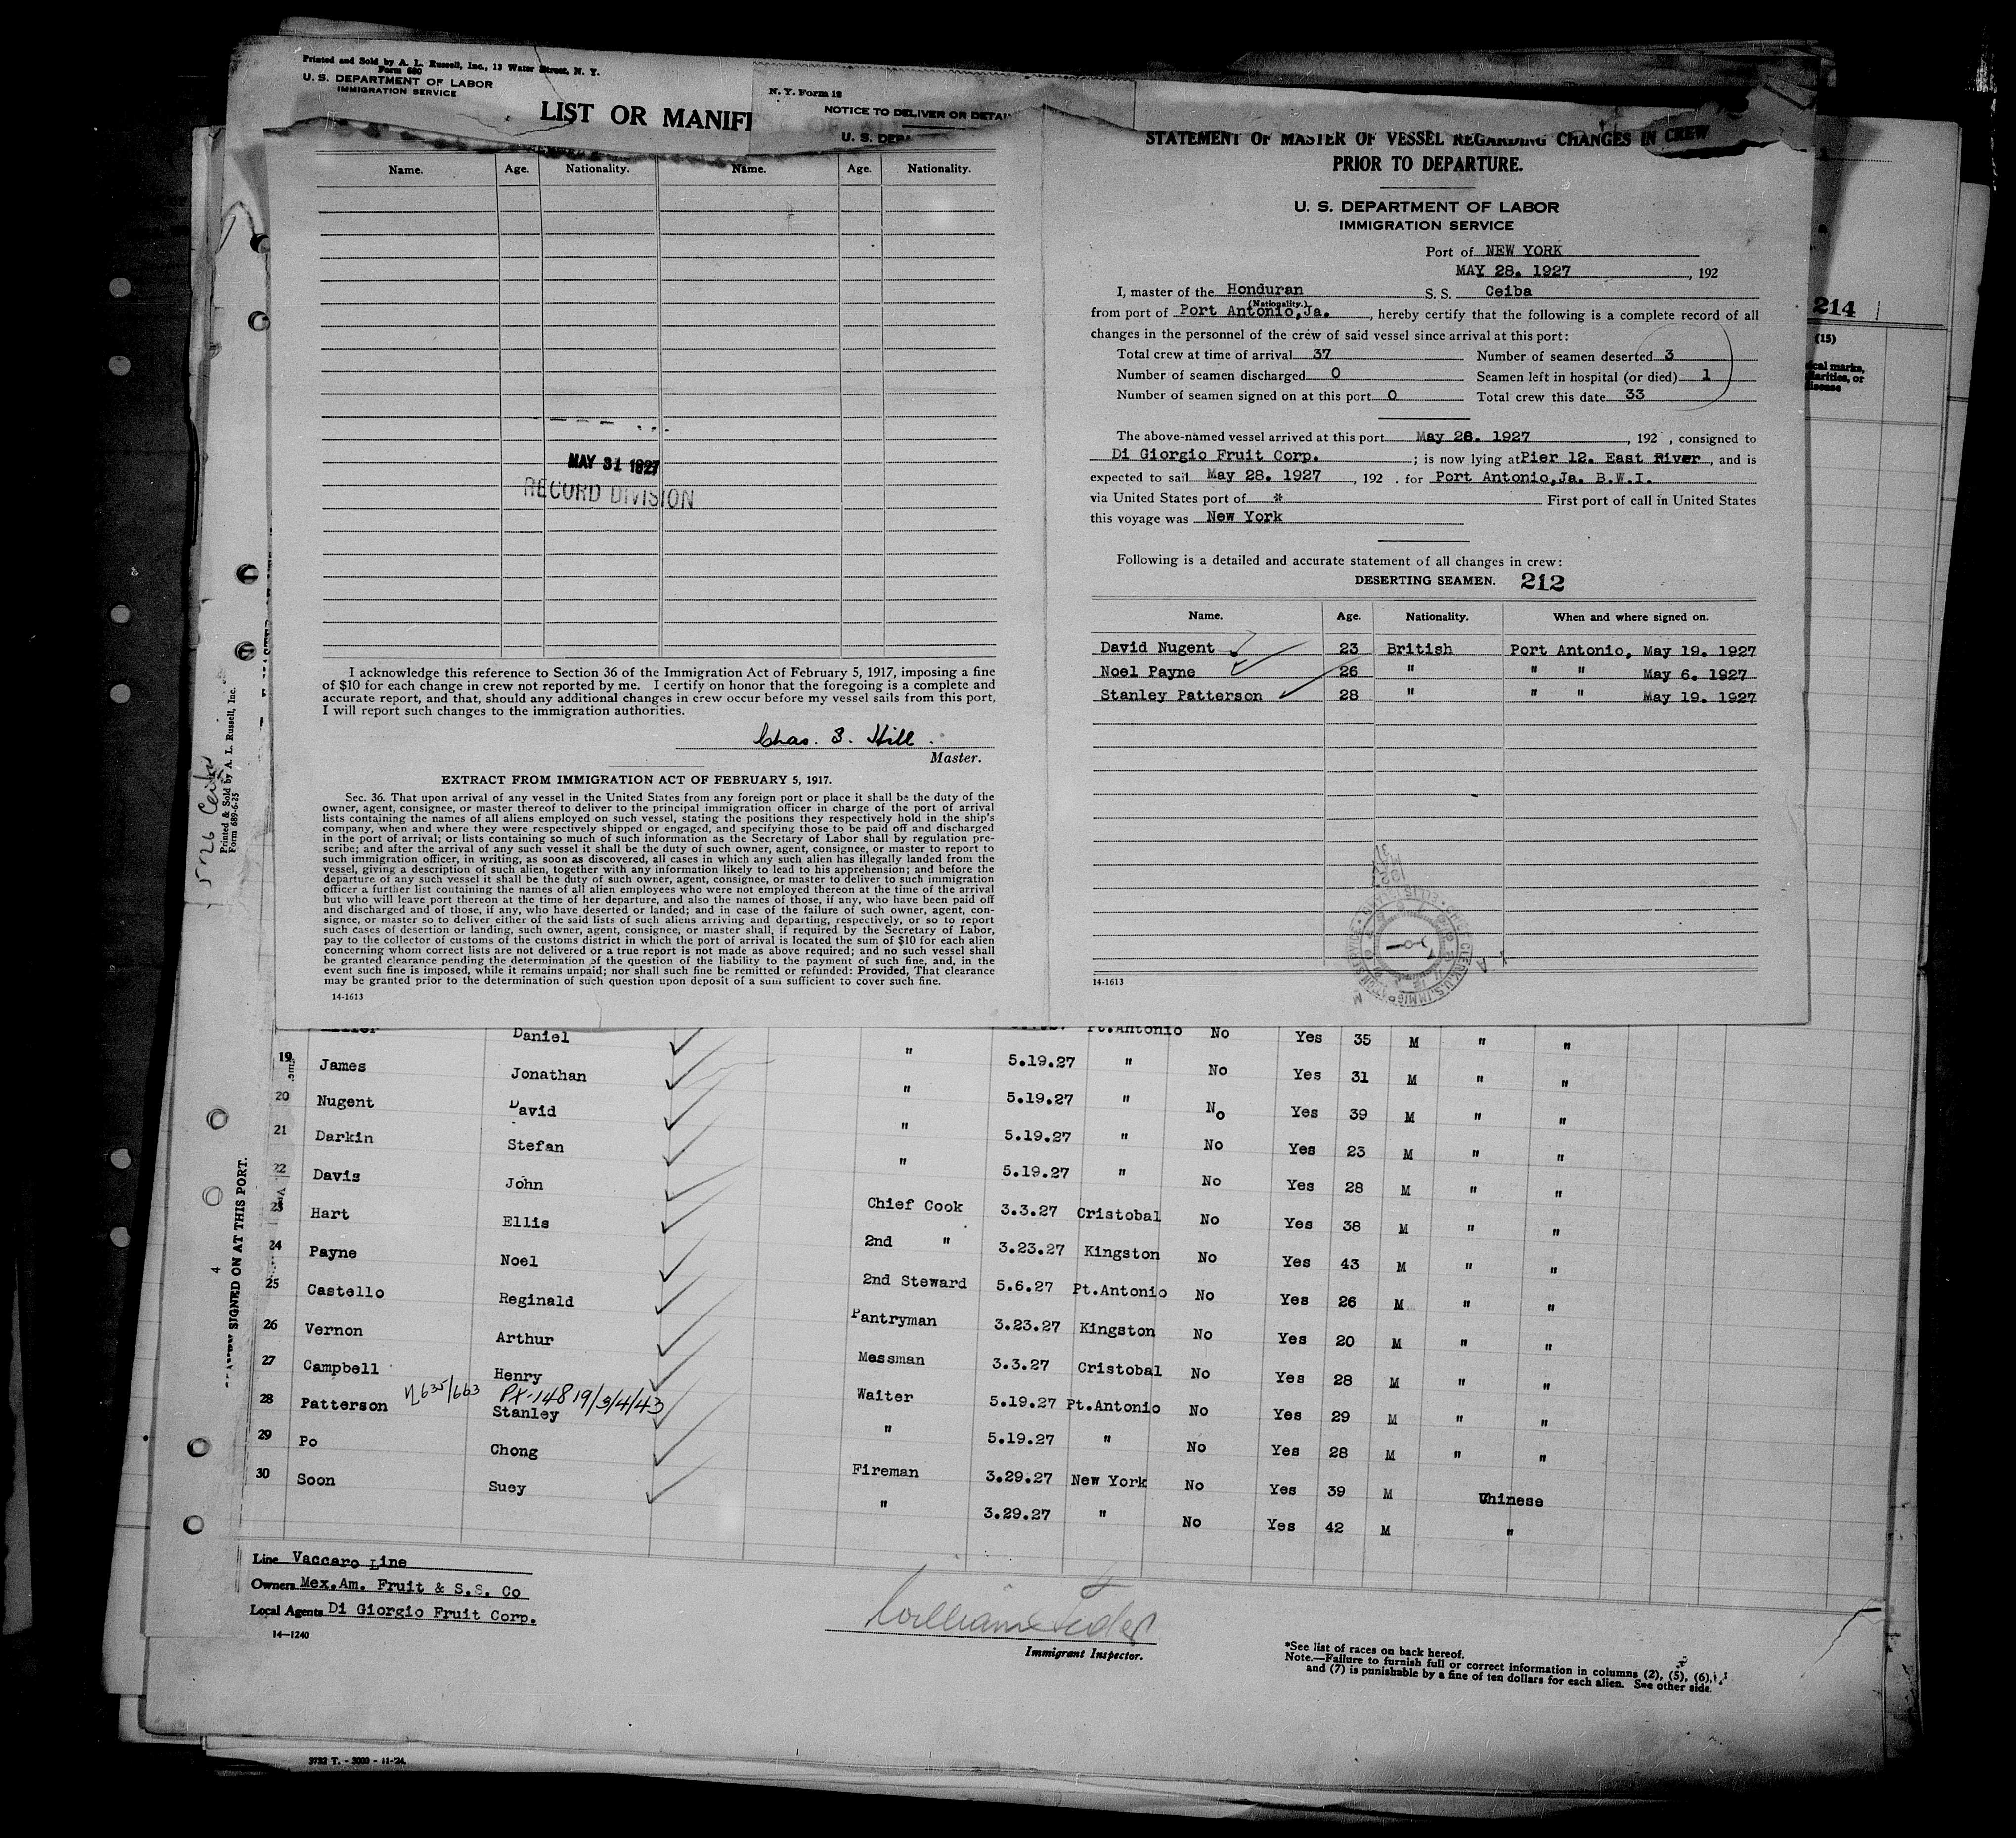 Printed and Sold by A. L. Russell, Inc., 13 Water Street, N. Y.
Form 680
U. S. DEPARTMENT OF LABOR
IMMIGRATION SERVICE
LIST OR MANIF
N. Y. Form 12
NOTICE TO DELIVER OR DETAI
U. S. DEPA
Name. Age. Nationality. Name. Age. Nationality.
MAY 31 1927
RECORD DIVISION
I acknowledge this reference to Section 36 of the Immigration Act of February 5, 1917, imposing a fine
of $10 for each change in crew not reported by me. I certify on honor that the foregoing is a complete and
accurate report, and that, should any additional changes in crew occur before my vessel sails from this port,
I will report such changes to the immigration authorities.
Chas. S. Hill.
Master.
EXTRACT FROM IMMIGRATION ACT OF FEBRUARY 5, 1917.
Sec. 36. That upon arrival of any vessel in the United States from any foreign port or place it shall be the duty of the
owner, agent, consignee, or master thereof to deliver to the principal immigration officer in charge of the port of arrival
lists containing the names of all aliens employed on such vessel, stating the positions they respectively hold in the ship's
company, when and where they were respectively shipped or engaged, and specifying those to be paid off and discharged
in the port of arrival; or lists containing so much of such information as the Secretary of Labor shall by regulation pre-
scribe; and after the arrival of any such vessel it shall be the duty of such owner, agent, consignee, or master to report to
such immigration officer, in writing, as soon as discovered, all cases in which any such alien has illegally landed from the
vessel, giving a description of such alien, together with any information likely to lead to his apprehension; and before the
departure of any such vessel it shall be the duty of such owner, agent, consignee, or master to deliver to such immigration
officer a further list containing the names of all alien employees who were not employed thereon at the time of the arrival
but who will leave port thereon at the time of her departure, and also the names of those, if any, who have been paid off
and discharged and of those, if any, who have deserted or landed; and in case of the failure of such owner, agent, con-
signee, or master so to deliver either of the said lists of such aliens arriving and departing, respectively, or so to report
such cases of desertion or landing, such owner, agent, consignee, or master shall, if required by the Secretary of Labor,
pay to the collector of customs of the customs district in which the port of arrival is located the sum of $10 for each alien
concerning whom correct lists are not delivered or a true report is not made as above required; and no such vessel shall
be granted clearance pending the determination of the question of the liability to the payment of such fine, and, in the
event such fine is imposed, while it remains unpaid; nor shall such fine be remitted or refunded: Provided, That clearance
may be granted prior to the determination of such question upon deposit of a sum sufficient to cover such fine.
14-1613
STATEMENT OF MASTER OF VESSEL REGARDING CHANGES IN CREW
PRIOR TO DEPARTURE.
U. S. DEPARTMENT OF LABOR
IMMIGRATION SERVICE
Port of NEW YORK
MAY 28. 1927, 192
I, master of the Honduran S. S. Ceiba
(Nationality.)
from port of Port Antonio, Ja., hereby certify that the following is a complete record of all
changes in the personnel of the crew of said vessel since arrival at this port:
Total crew at time of arrival 37 Number of seamen deserted 3
Number of seamen discharged 0 Seamen left in hospital (or died) 1
Number of seamen signed on at this port 0 Total crew this date 33
The above-named vessel arrived at this port May 26. 1927, 192 , consigned to
Di Giorgio Fruit Corp. ; is now lying at Pier 12. East River, and is
expected to sail May 28. 1927, 192 . for Port Antonio, Ja. B.W.I.
via United States port of * First port of call in United States
this voyage was New York
Following is a detailed and accurate statement of all changes in crew:
DESERTING SEAMEN. 212
Name. Age. Nationality. When and where signed on.
David Nugent 23 British Port Antonio, May 19. 1927
Noel Payne 26 " " " May 6. 1927
Stanley Patterson 28 " " " May 19. 1927
14-1613
214
(15)
ical marks,
liarities, or
disease
5/26 Ceiba
Printed & Sold by A. L. Russell, Inc.
Form 689-6-25
SIGNED ON AT THIS PORT.
4
Daniel Pt.Antonio No Yes 35 M " "
19 James Jonathan " 5.19.27 " No Yes 31 M " "
20 Nugent David " 5.19.27 " No Yes 39 M " "
21 Darkin Stefan " 5.19.27 " No Yes 23 M " "
22 Davis John " 5.19.27 " No Yes 28 M " "
23 Hart Ellis Chief Cook 3.3.27 Cristobal No Yes 38 M " "
24 Payne Noel 2nd " 3.23.27 Kingston No Yes 43 M " "
25 Castello Reginald 2nd Steward 5.6.27 Pt.Antonio No Yes 26 M " "
26 Vernon Arthur Pantryman 3.23.27 Kingston No Yes 20 M " "
27 Campbell Henry Messman 3.3.27 Cristobal No Yes 28 M " "
PX-14819/3/4/43
28 Patterson Stanley Waiter 5.19.27 Pt.Antonio No Yes 29 M " "
29 Po Chong " 5.19.27 " No Yes 28 M " "
30 Soon Suey Fireman 3.29.27 New York No Yes 39 M Chinese
" 3.29.27 " No Yes 42 M "
Line Vaccaro Line
Owners Mex.Am. Fruit & S.S. Co
Local Agents Di Giorgio Fruit Corp.
14—1240
Immigrant Inspector.
*See list of races on back hereof.
Note.—Failure to furnish full or correct information in columns (2), (5), (6),
and (7) is punishable by a fine of ten dollars for each alien. See other side.
3732 T. - 3000 - 11-'24.